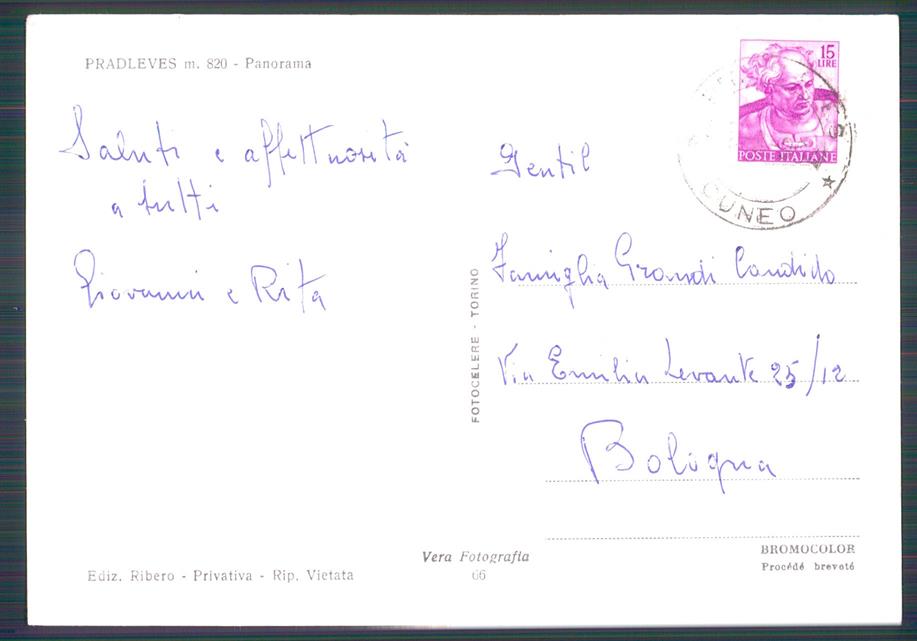 PRADLEVES m. 820 - Panorama
Saluti e affettuosità
a tutti
Giovanni e Rita
15
LIRE
POSTE ITALIANE
CUNEO
Gentil
Famiglia Grandi Candido
Via Emilia Levante 25/12
Bologna
FOTOCELERE - TORINO
Vera Fotografia
66
Ediz. Ribero - Privativa - Rip. Vietata
BROMOCOLOR
Procédé breveté